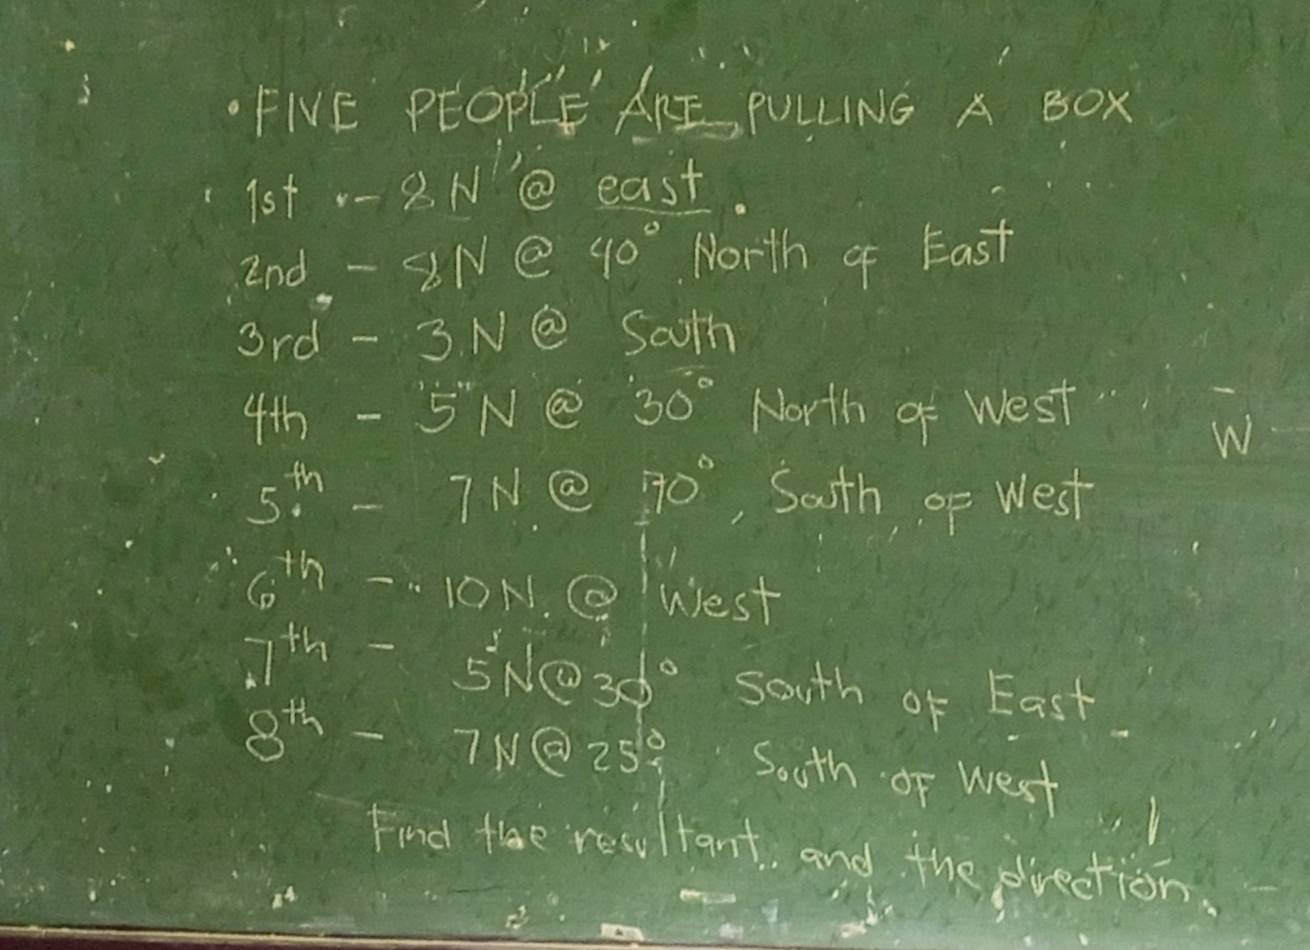 • FIVE PEOPLE ARE PULLING A BOX
1st - 8N @ east.
2nd - 8N @ 40° North of East
3rd - 3N @ South
4th - 5N @ 30° North of West
W
5th - 7N @ 70° South of West
6th - 10N @ West
7th - 5N@30° South of East
8th - 7N@25° South of West
Find the resultant and the direction.